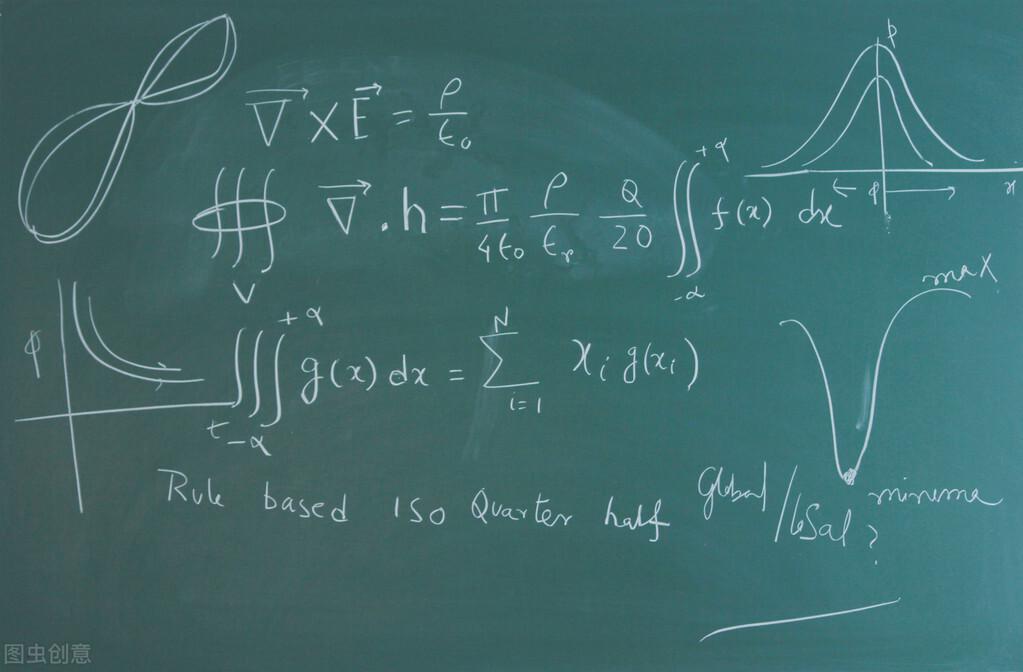 ∇ × E = ρ/ε₀
∭ ∇ . h = π/4ε₀ ρ/εᵣ Q/20 ∬ f(x) dx
V
+α
-α
p
ϕ
x
max
ϕ
t
+α
∭ g(x) dx = ∑ xᵢ g(xᵢ)
-α
N
i=1
Rule based ISO Quarter half
Global / losal minima ?
图虫创意